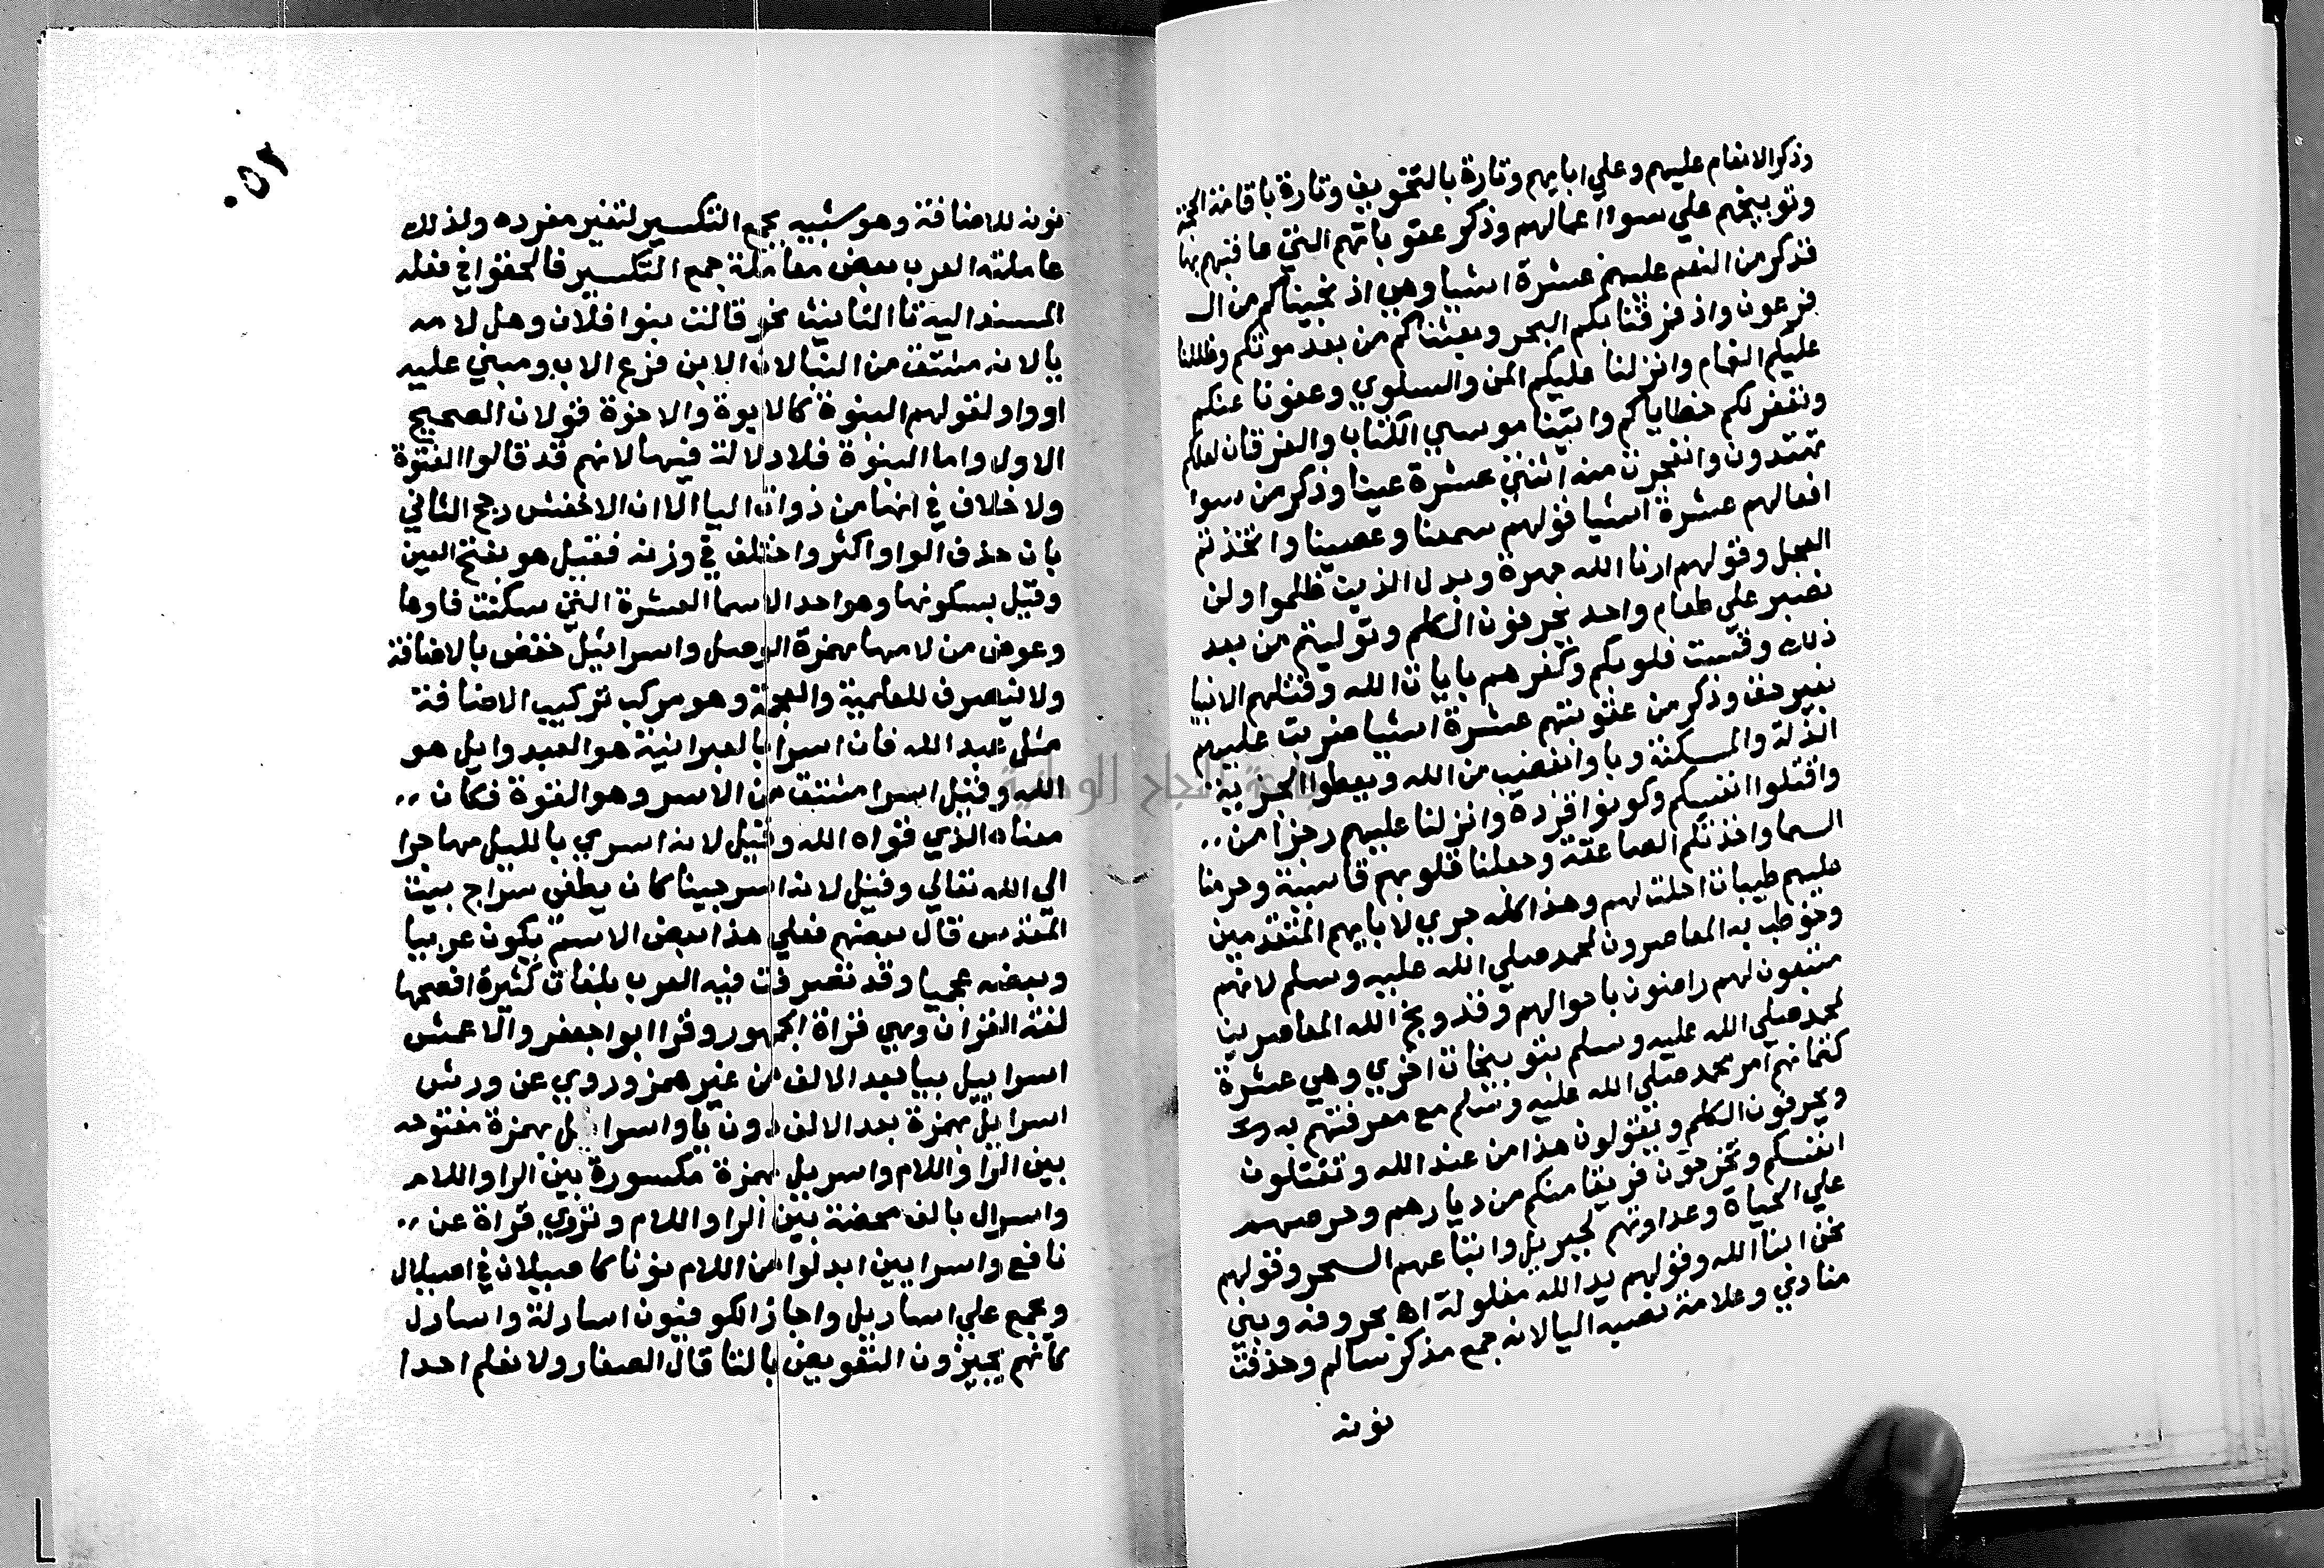 وذكر الانعام عليهم وعلي ابايهم وتارة بالتخويف وتارة باقامة الحجة
وتوبيخهم علي سوا اعمالهم وذكر عقوباتهم التي عاقبهم بها
فذكر من النعم عليهم عشرة اشيا وهي اذ نجيناكم من ال
فرعون واذ فرقنا بكم البحر وبعثناكم من بعد موتكم وظللنا
عليكم الغمام وانزلنا عليكم المن والسلوي وعفونا عنكم
ونغفر لكم خطاياكم واتينا موسي الكتاب والفرقان لعلكم
تهتدون وانفجرت منه اثنتي عشرة عينا وذكر من سوا
افعالهم عشرة اشيا قولهم سمعنا وعصينا واتخذتم
العجل وقولهم ارنا الله جهرة وبدل الذين ظلموا ولن
نصبر علي طعام واحد يحرفون الكلم وتوليتم من بعد
ذلك وقست قلوبكم وكفرهم بايات الله وقتلهم الانبيا
بغير حق وذكر من عقوبتهم عشرة اشيا ضربت عليهم
الذلة والمسكنة وباوا بغضب من الله ويعطوا الجزية
واقتلوا انفسكم وكونوا قردة وانزلنا عليهم رجزا من
السما واخذتكم الصاعقة وجعلنا قلوبهم قاسية وحرمنا
عليهم طيبات احلت لهم وهذا كله جري لابايهم المتقدمين
وخوطب به المعاصرون لمحمد صلي الله عليه وسلم لانهم
متبعون لهم راضون باحوالهم وقد وبخ الله المعاصرين
لمحمد صلي الله عليه وسلم بتوبيخات اخري وهي عشرة
كتمانهم امر محمد صلي الله عليه وسلم مع معرفتهم به
ويحرفون الكلم ويقولون هذا من عند الله وتقتلون
انفسكم وتخرجون فريقا منكم من ديارهم وحرصهم
علي الحياة وعداوتهم لجبريل واتباعهم السحر وقولهم
نحن ابنا الله وقولهم يد الله مغلولة اه بحروفه وبني
منادي وعلامة نصبه اليا لانه جمع مذكر سالم وحذفت
نونه
٥٢
نونه للاضافة وهو شبيه بجمع التكسير لتغير مفرده ولذلك
عاملته العرب ببعض معاملة جمع التكسير فالحقوا في فعله
المسند اليه تا التانيث نحو قالت بنوا فلان وهل لامه
يا لانه مشتق من البنا لان الابن فرع الاب ومبني عليه
او واو لقولهم البنوة كالابوة والاخوة قولان الصحيح
الاول واما البنوة فلا دلالة فيها لانهم قد قالوا الفتوة
ولا خلاف في انها من ذوات اليا الا ان الاخفش رجح الثاني
بان حذف الواو اكثر واختلف في وزنه فقيل هو بفتح العين
وقيل بسكونها وهو احد الاسما العشرة التي سكنت فاوها
وعوض من لامها همزة الوصل واسرائيل خفض بالاضافة
ولا ينصرف للعلمية والعجمة وهو مركب تركيب الاضافة
مثل عبد الله فان اسرا بالعبرانية هو العبد وايل هو
الله وقيل اسرا مشتق من الاسر وهو القوة فكان
معناه الذي قواه الله وقيل لانه اسري بالليل مهاجرا
الي الله تعالي وقيل لانه اسر جينا كان يطفي سراج بيت
المقدس قال بعضهم فعلي هذا بعض الاسم يكون عربيا
وبعضه عجميا وقد تصرفت فيه العرب بلغات كثيرة افصحها
لغة القران وهي قراة الجمهور وقرا ابوا جعفر والاعمش
اسراييل بيا بعد الالف من غير همز وروي عن ورش
اسرايل بهمزة بعد الالف دون يا واسرايل بهمزة مفتوحه
بين الرا واللام واسريل بهمزة مكسورة بين الرا واللام
واسرال بالف محضة بين الرا واللام وتروي قراة عن
نافع واسرايين ابدلوا من اللام نونا كاصيلان في اصيلال
ويجمع علي اساريل واجاز الكوفيون اسارلة واسارل
كانهم يجيزون التعويض بالتا قال الصفار ولا نعلم احدا